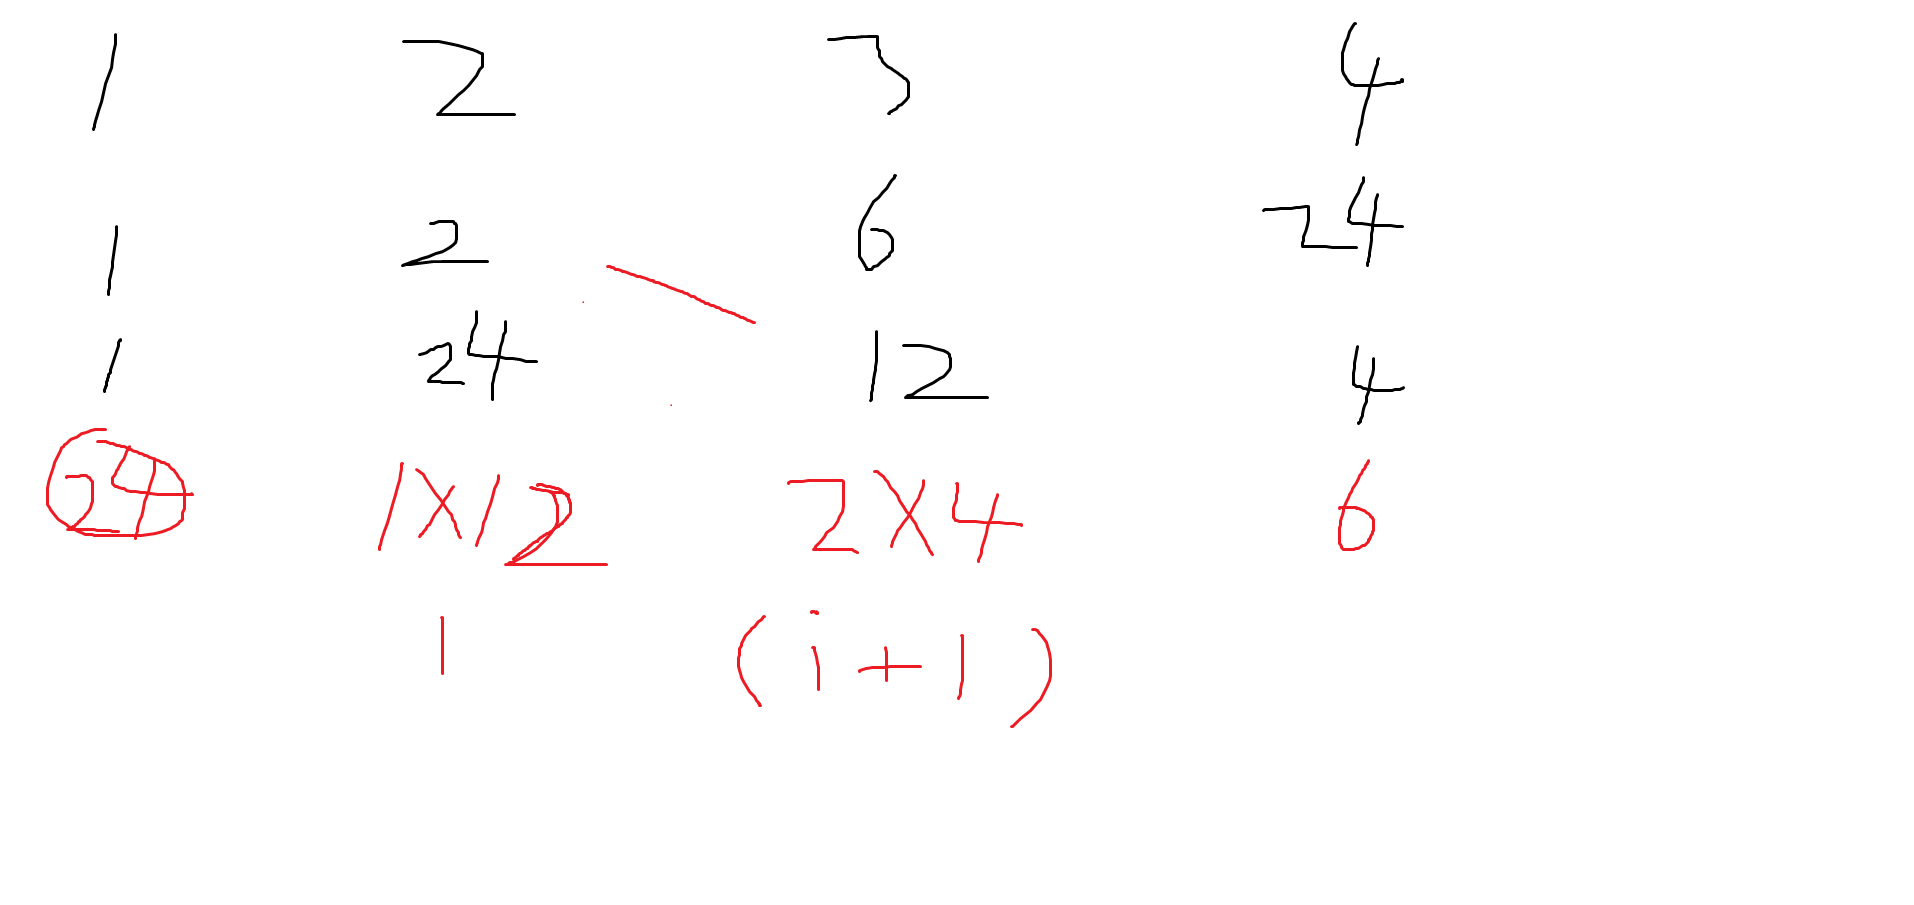 1 2 3 4
1 2 6 24
1 24 12 4
24 1×12 2×4 6
1 (i+1)